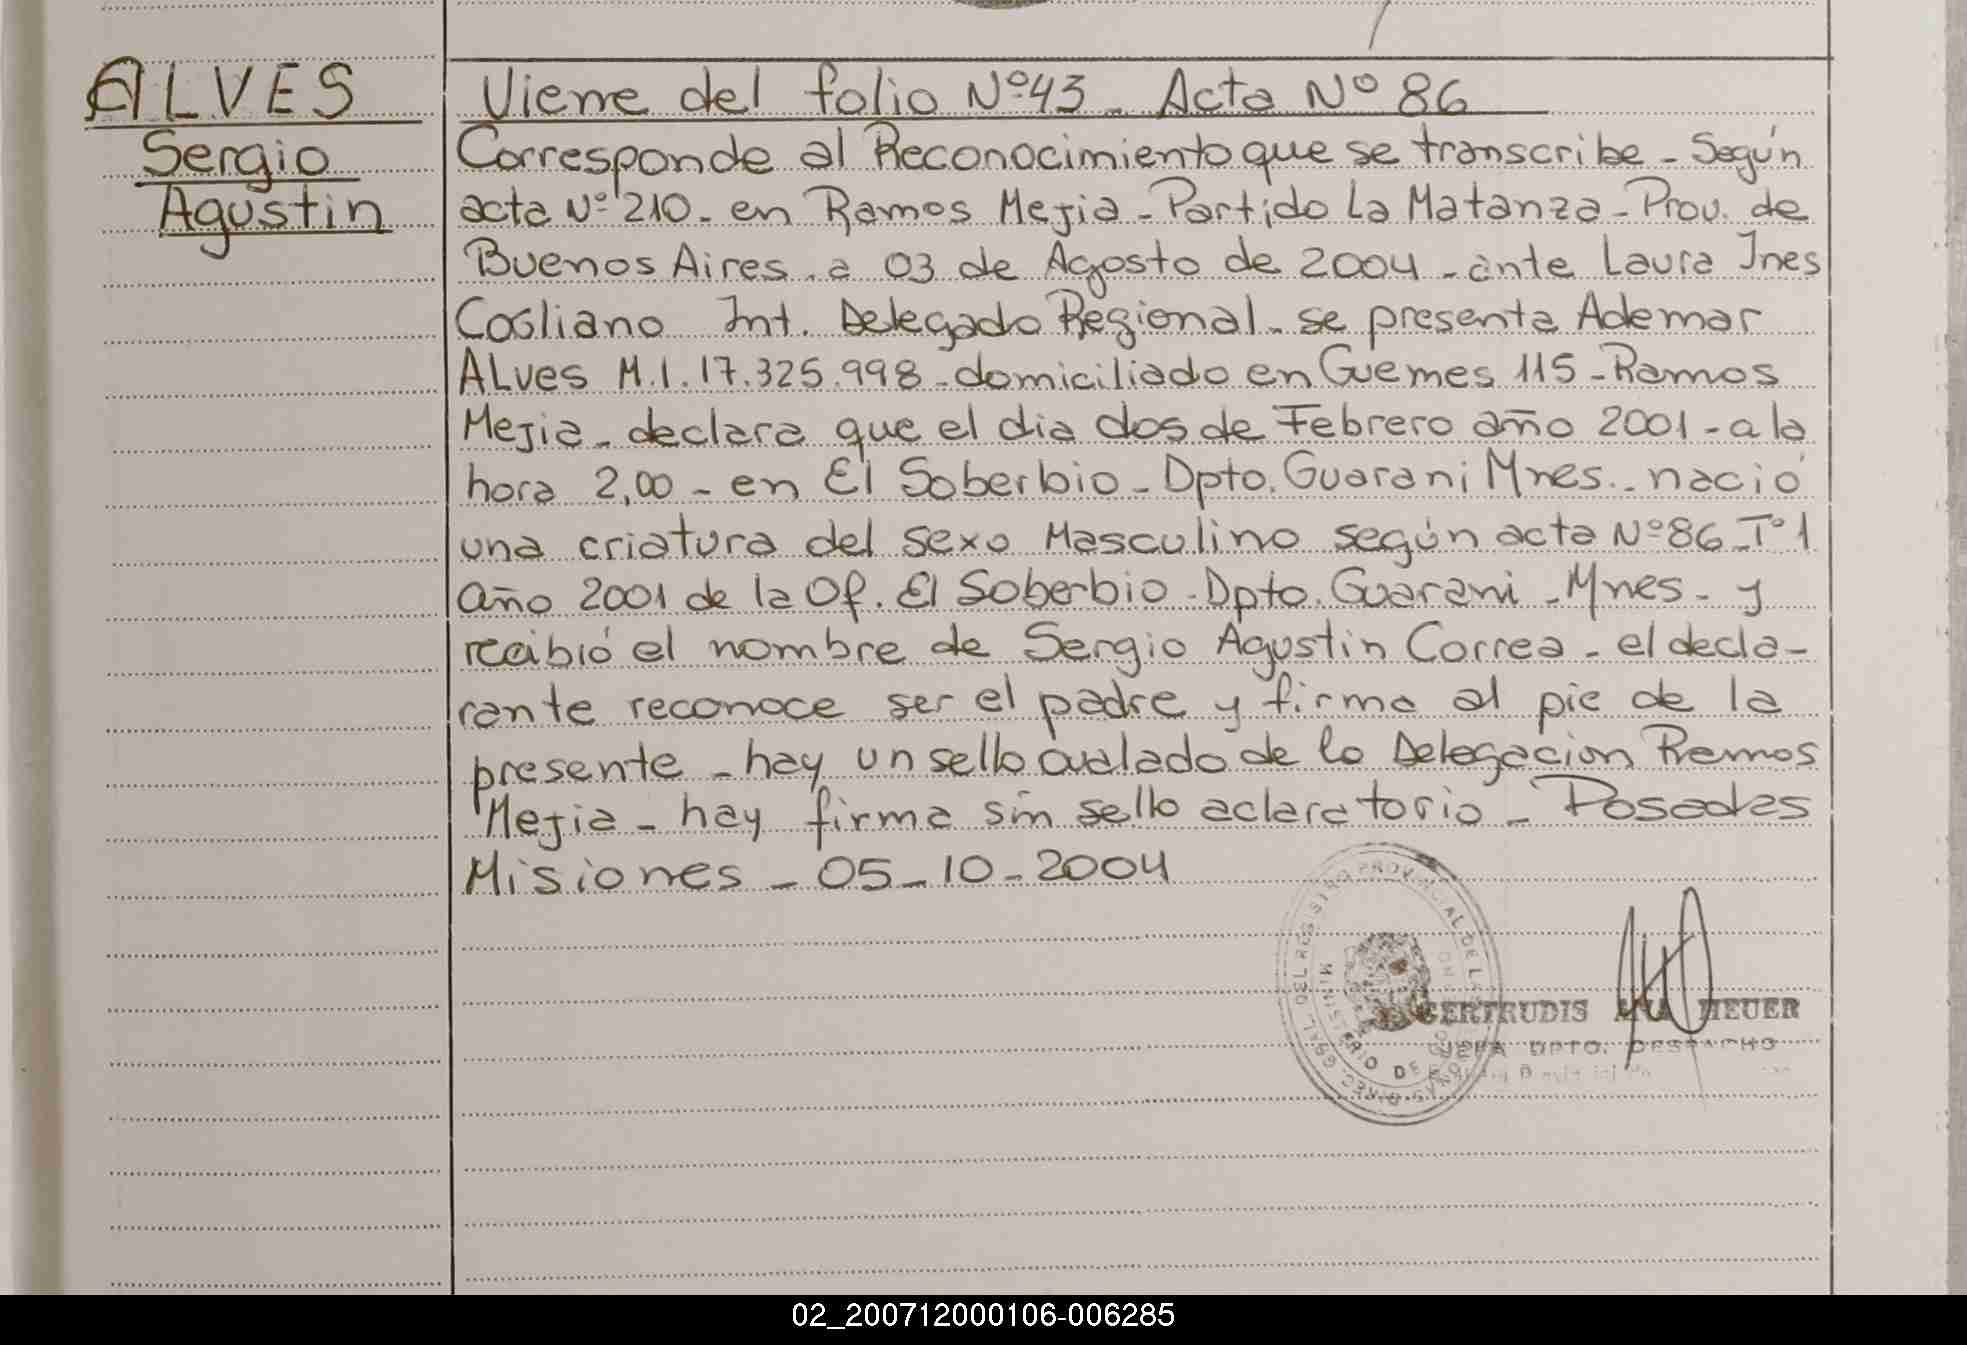 ALVES
Sergio
Agustin
Viene del folio Nº43. Acta Nº 86
Corresponde al Reconocimiento que se transcribe - Según
acta Nº 210 - en Ramos Mejia - Partido La Matanza - Prov. de
Buenos Aires, a 03 de Agosto de 2004 - ante Laura Ines
Cogliano Int. Delegado Regional - se presenta Ademar
ALves M.I. 17.325.998 - domiciliado en Guemes 115 - Ramos
Mejia - declara que el dia dos de Febrero año 2001 - a la
hora 2,00 - en El Soberbio - Dpto. Guarani Mnes. - nació
una criatura del sexo Masculino según acta Nº 86 - Tº 1
año 2001 de la Of. El Soberbio - Dpto. Guarani - Mnes - y
recibió el nombre de Sergio Agustin Correa - el decla-
rante reconoce ser el padre y firma al pie de la
presente - hay un sello ovalado de la Delegacion Ramos
Mejia - hay firma sin sello aclaratorio - Posadas
Misiones - 05 - 10 - 2004
DIREC. GRAL. DEL REGISTRO PROVINCIAL DE LAS
MINISTERIO DE
GERTRUDIS ANA HEUER
JEFA DPTO. DESPACHO
02_200712000106-006285